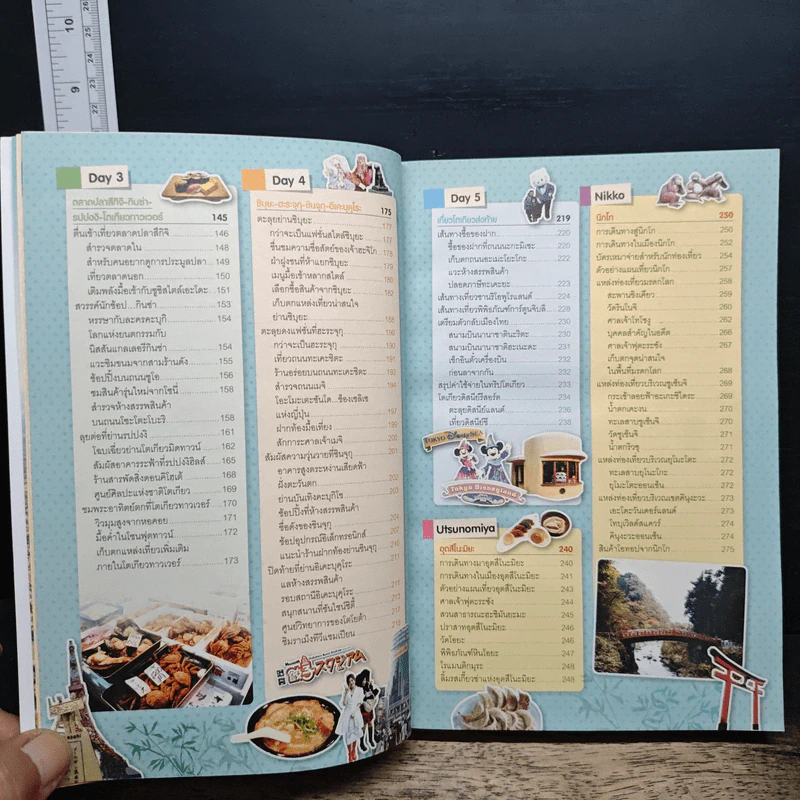 10
9
Day 3
ตลาดปลาสึกิจิ-กินซ่า-
รปปงงิ-โตเกียวทาวเวอร์ 145
ตื่นเช้าเที่ยวตลาดปลาสึกิจิ 146
สำรวจตลาดใน 148
สำหรับคนอยากดูการประมูลปลา 149
เที่ยวตลาดนอก 150
เติมพลังมื้อเช้ากับซูชิสไตล์เอะโดะ 151
สวรรค์นักช้อป...กินซ่า 153
หรรษากับละครคะบุกิ
โลกแห่งยนตกรรมกับ
นิสสันแกลเลอรีกินซ่า 154
แวะชิมขนมจากสามร้านดัง 155
ช้อปปิ้งบนถนนชูโอ 156
ชมสินค้ารุ่นใหม่จากโซนี่ 158
สำรวจห้างสรรพสินค้า
บนถนนโซะโตะโบะริ 158
ลุยต่อที่ย่านรปปงงิ 161
โฉบเฉี่ยวย่านโตเกียวมิดทาวน์ 162
สัมผัสอาคารระฟ้าที่รปปงงิฮิลส์ 163
สำรวจร้านดังสิ่งดอนคิโฮเต้ 168
ศูนย์ศิลปะแห่งชาติโตเกียว 169
ชมพระอาทิตย์ตกที่โตเกียวทาวเวอร์ 170
วิวมุมสูงจากหอคอย 171
มื้อค่ำในโซนฟุตทาวน์ 172
เก็บตกแหล่งเที่ยวเพิ่มเติม
ภายในโตเกียวทาวเวอร์ 173
Day 4
ชิบุยะ-ฮะระจุกุ-ชินจุกุ-อิเคะบุคุโระ 175
ตะลุยย่านชิบุยะ
กว่าจะเป็นแฟชั่นสไตล์ชิบุยะ
ชื่นชมความซื่อสัตย์ของเจ้าฮะจิโก
ฝ่าฝูงชนที่ห้าแยกชิบุยะ
เมนูมื้อเช้าหลากสไตล์
เลือกซื้อสินค้าจากชิบุยะ
เก็บตกแหล่งเที่ยวน่าสนใจ
ย่านชิบุยะ
ตะลุยดงแฟชั่นที่ฮะระจุกุ
กว่าจะเป็นฮะระจุกุ
เที่ยวถนนทะเคะชิตะ
ร้านอร่อยบนถนนทะเคะชิตะ
สำรวจถนนเมจิ
โอะโมะเตะซันโด...ช็องเซลิเซ
แห่งญี่ปุ่น 197
ฝากท้องมื้อเที่ยง 201
สักการะศาลเจ้าเมจิ 200
สัมผัสความวุ่นวายที่ชินจุกุ
อาคารสูงตระหง่านเสียดฟ้า
ฝั่งตะวันตก
ย่านบันเทิงคะบุกิโช
ช้อปปิ้งที่ห้างสรรพสินค้า
ชื่อดังของชินจุกุ
ช้อปอุปกรณ์อิเล็กทรอนิกส์
แนะนำร้านฝากท้องย่านชินจุกุ
ปิดท้ายที่ย่านอิเคะบุคุโระ
แลห้างสรรพสินค้า
รอบสถานีอิเคะบุคุโระ
สนุกสนานที่ซันไชน์ซิตี้
ศูนย์วิทยาการของโตโยต้า
ชิมราเม็งทีวีแชมเปียน
Day 5
เที่ยวโตเกียวส่งท้าย 219
เส้นทางซื้อของฝาก 220
ซื้อของฝากที่ถนนนะกะมิเซะ 220
เก็บตกถนนอะเมะโยะโกะ
แวะห้างสรรพสินค้า
ปลอดภาษีทะเคะยะ
เส้นทางเที่ยวซานริโอพูโรแลนด์
เส้นทางเที่ยวพิพิธภัณฑ์การ์ตูนจิบลิ
เตรียมตัวกลับเมืองไทย
สนามบินนานาชาตินะริตะ
สนามบินนานาชาติฮะเนะดะ
เช็กอินตัวเครื่องบิน 232
ก่อนลาจากกัน 232
สรุปค่าใช้จ่ายในทริปโตเกียว 233
โตเกียวดิสนีย์รีสอร์ต 234
ตะลุยดิสนีย์แลนด์
เที่ยวดิสนีย์ซี 238
Tokyo Disneyland
Utsunomiya
อุตสึโนะมิยะ 240
การเดินทางมาอุตสึโนะมิยะ 240
การเดินทางในเมืองอุตสึโนะมิยะ 241
ตัวอย่างแผนเที่ยวอุตสึโนะมิยะ 243
ศาลเจ้าฟุตะระซัง 245
สวนสาธารณะฮะชิมันยะมะ 245
ปราสาทอุตสึโนะมิยะ 246
วัดโอยะ 246
พิพิธภัณฑ์หินโอยะ 246
โรแมนติกมุระ 248
ลิ้มรสเกี๊ยวซ่าแห่งอุตสึโนะมิยะ 248
Nikko
นิกโก 250
การเดินทางสู่นิกโก 250
การเดินทางในเมืองนิกโก 252
บัตรเหมาจ่ายสำหรับนักท่องเที่ยว
ตัวอย่างแผนเที่ยวนิกโก
แหล่งท่องเที่ยวมรดกโลก
สะพานชิงเคียว
วัดรินโนจิ
ศาลเจ้าโทโชงู
บุคคลสำคัญในอดีต
ศาลเจ้าฟุตะระซัง
เก็บตกจุดน่าสนใจ
ในพื้นที่มรดกโลก 268
แหล่งท่องเที่ยวบริเวณชูเซ็นจิ 269
กระเช้าลอยฟ้าอะเกะชิไดระ 269
น้ำตกเคะงน 270
ทะเลสาบชูเซ็นจิ 270
วัดชูเซ็นจิ 271
น้ำตกริวซุ 271
แหล่งท่องเที่ยวบริเวณยุโมะโตะ 272
ทะเลสาบยุโนะโกะ 272
ยุโมะโตะออนเซ็น 272
แหล่งท่องเที่ยวบริเวณเขตคินุงะวะ
เอะโดะวันเดอร์แลนด์
โทบุเวิลด์สแควร์ 274
คินุงะวะออนเซ็น 274
สินค้าโอทอปจากนิกโก 275